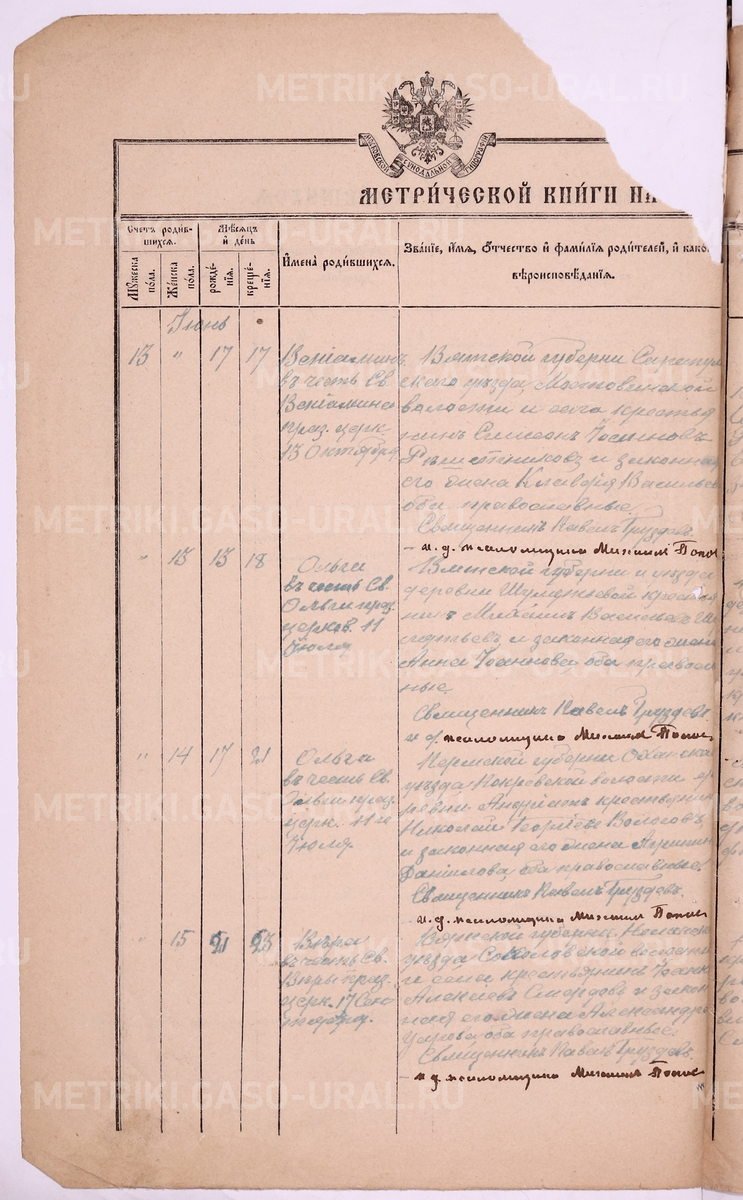 METRIKI.GASO-URAL.RU
МОСКОВСКОЙ СУНОДАЛЬНОЙ ТИПОГРАФІИ
МЕТРИ́ЧЕСКОЙ КНИ́ГИ НА
Счетъ роди́в-
шихся.
Мѣсяцъ
и де́нь
Му́жеска
по́ла.
Же́нска
по́ла.
рожде́-
нія.
креще́-
нія.
Имена̀ роди́вшихся.
Зва́ніе, и́мя, о́тчество и фами́лія роди́телей, и како
вѣроисповѣ́данія.
Іюнь
13 " 17 17
Веніаминъ
въ честь Св.
Веніамина
праз. церк.
13 Октября
Вятской губерни Сарапул
скаго уѣзда Мостовинской
волости и села крестья
нинъ Симеонъ
и законная
его жена Клавдія Василье
оба православные.
Священникъ Павелъ Груздевъ
и. д. псаломщика Михаилъ Попов
" 13 13 18
Ольга
въ честь Св.
Ольги праз.
церков. 11
Іюля
Вятской губерни и уѣзда
деревни крестья
нинъ Михаилъ Васильевъ
и законная его жена
Анна Іоаннова оба правосла
ные.
Священникъ Павелъ Груздевъ.
и д. псаломщика Михаилъ Попов
" 14 17 21
Ольга
въ честь Св.
Ольги праз.
церк. 11го
Іюля
Пермской губерни Оханска
уѣзда Покровской волости де
ревни крестьянин
Николай Георгіевъ
и законная его жена
Даніилова оба православные.
Священникъ Павелъ Груздевъ.
и. д. псаломщика Михаилъ Попов
" 15 21 23
Вѣра
въ честь Св.
Вѣры праз.
церк. 17 Сен
тября.
губерны
уѣзда Соколовской волости
и села крестьянинъ Іоанн
Алексѣевъ Смердовъ и закон
ная его жена Александра
оба православные.
Священникъ Павелъ Груздевъ.
и. д. псаломщика Михаилъ Попов